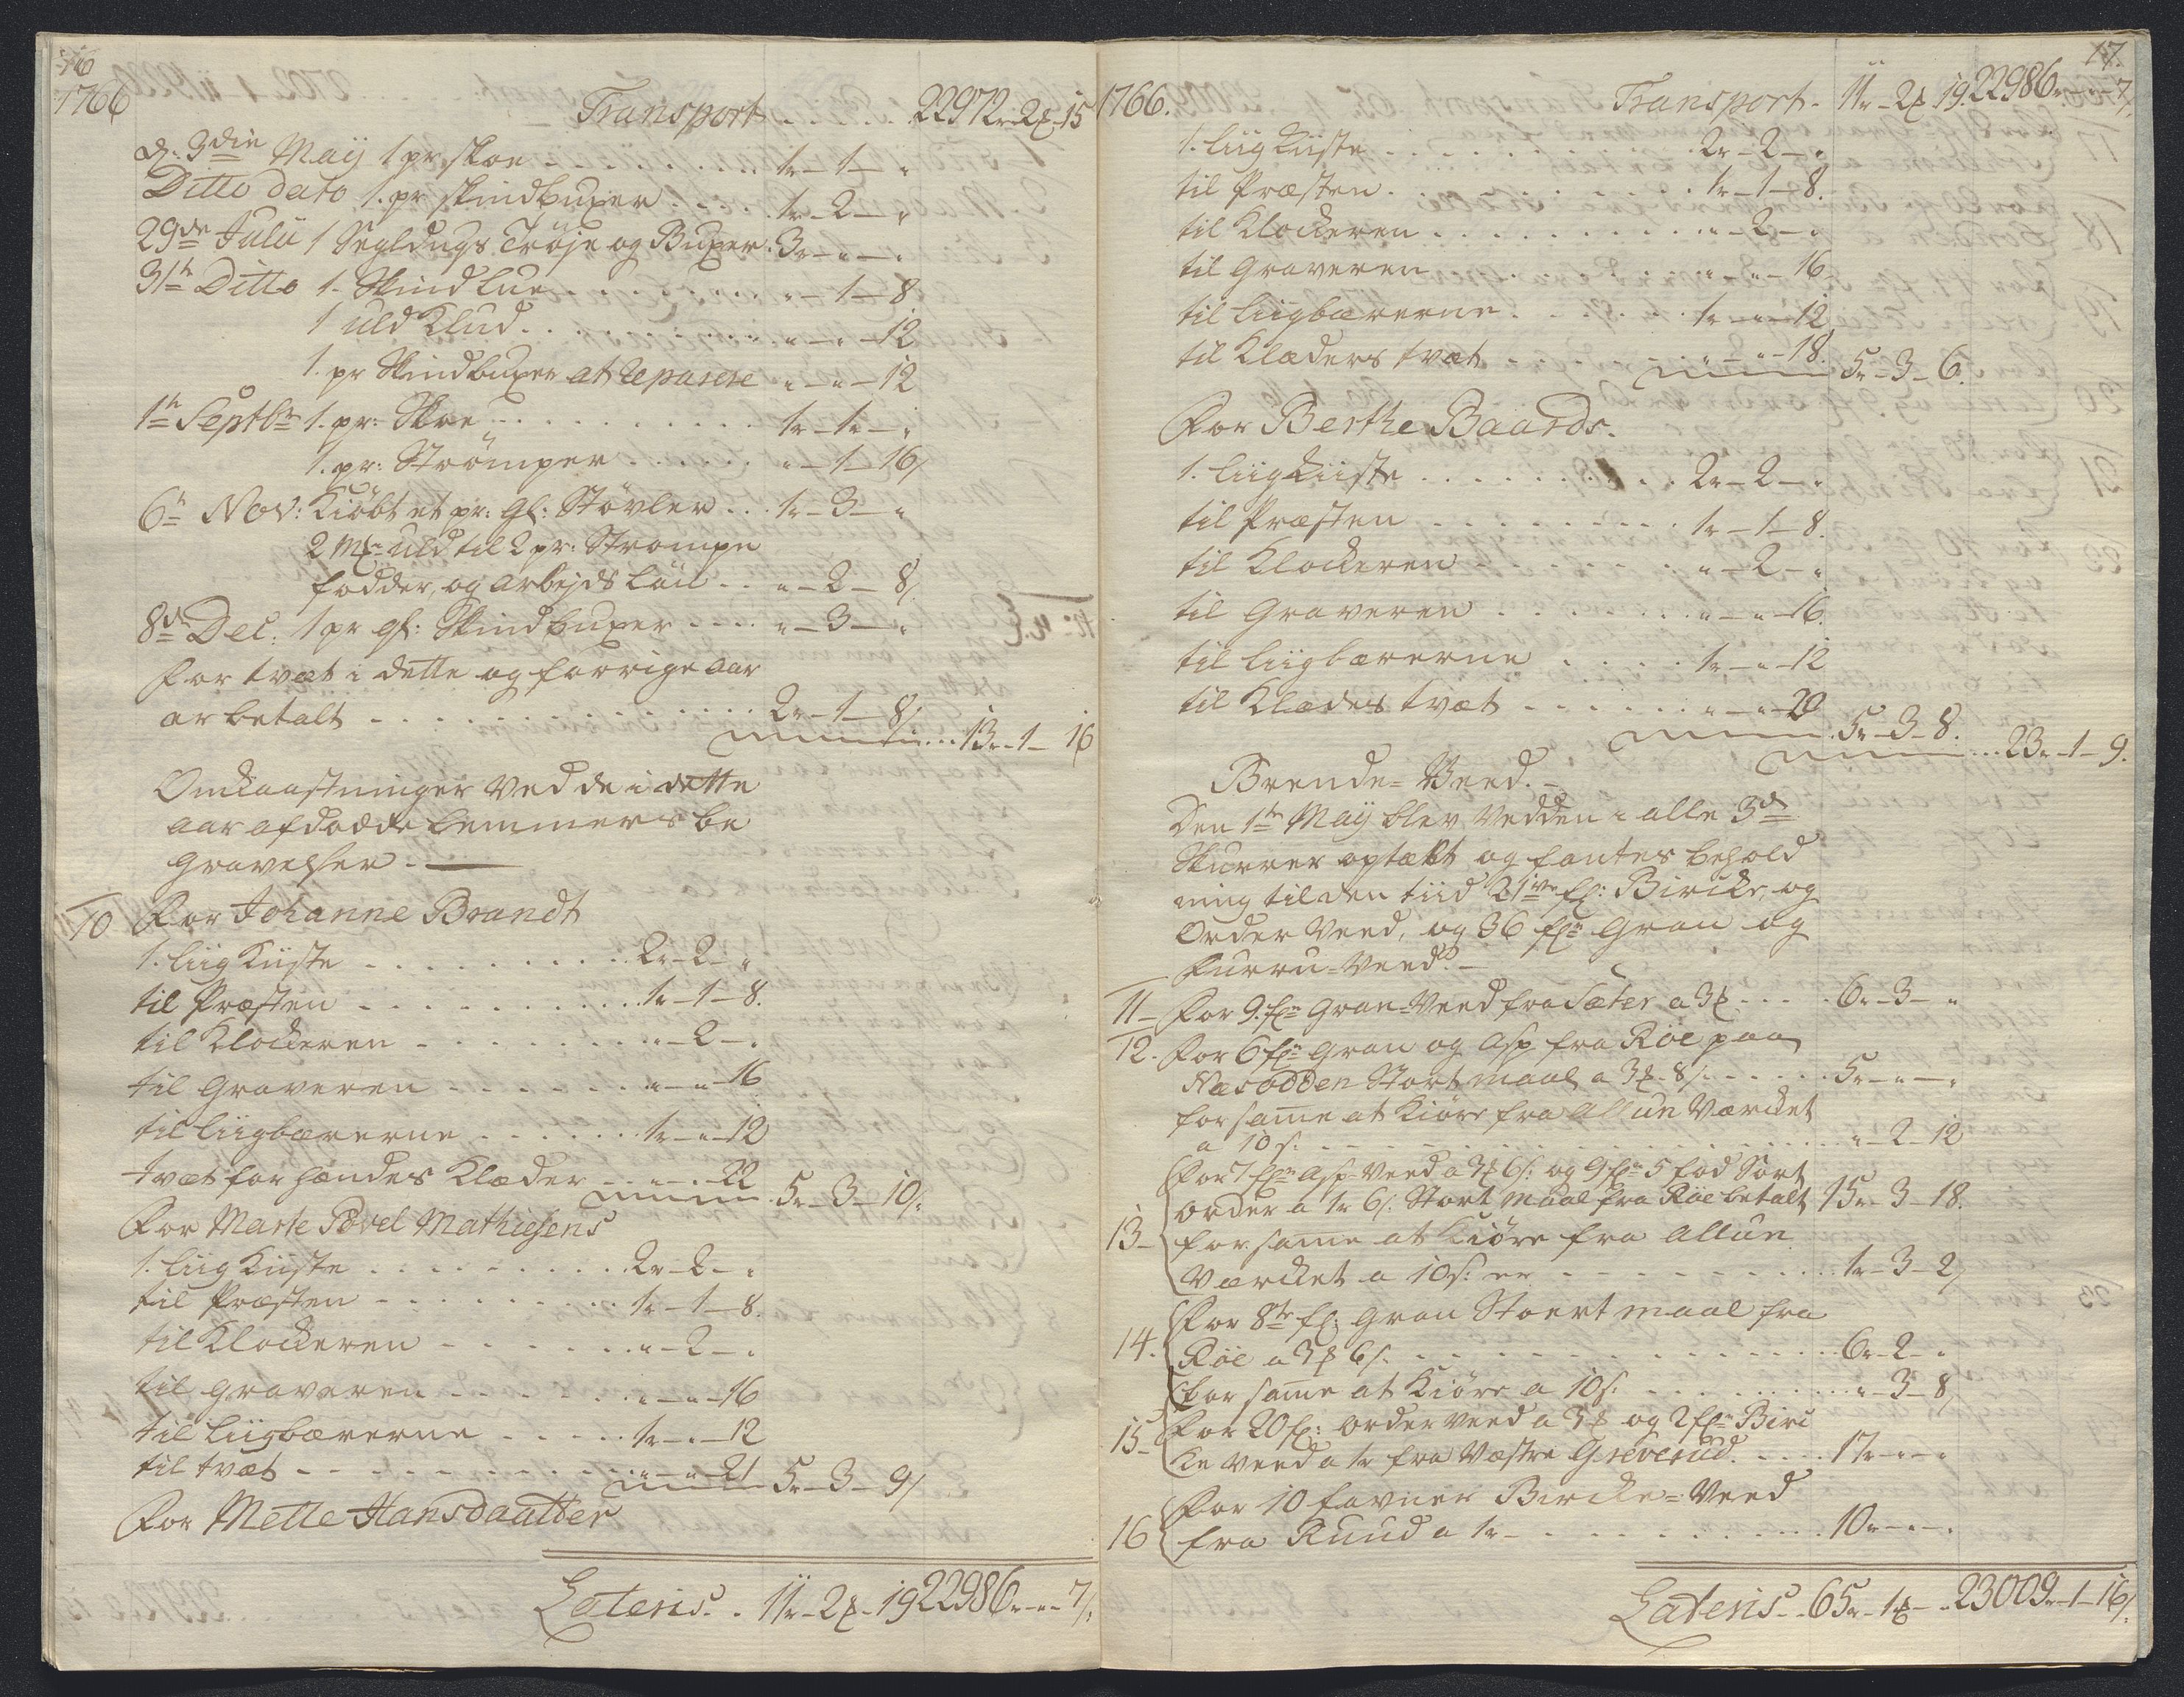 16
1766
Transport . . . . . 22972r-2₰-15
d: 3die Maÿ 1 pr skoe - - - - - - - - 1r-1-"
Ditto dato 1. pr skindbuxer - - - . 1r-2-"
29de Julii 1 Segldugs Trøje og Buxer . 3r-"-"
31te Ditto 1. Skind Lue - - - - - - "-1-8
1 uld Klud . . . . . . . . "-"-12
1. pr Skindbuxer at reparere "-"-12
1te Septbr 1. pr: Skoe - - - - - - - 1r-1-"
1. pr: Strömper - - - - - - "-1-16/
6te Nov: Kiöbt et pr: gl: Stövler . . 1r-3-"
2 mkr uld til 2 pr: Strömpe
födder, og arbejds Lön - - "-2-8/.
8de Dec: 1 pr gl: Skindbuxer - - - - "-3-"
For tvæt i dette og forrige aar
er betalt - - - - - - - - - - - - - 2r-1-8/
13r-1-16
Omkaastninger Ved de i dette
aar afdöde Lemmers be
gravelser. -
10 For Johanne Brandt
1. Liig Kiiste - - - - - - - - 2r-2-"
til Præsten - - - - - - - - 1r-1-8.
til Klockeren - - - - - - - "-2-"
til Graveren - - - - - - - "-"-16
til Liigbærerne - - - - - - 1r-"-12
tvæt for hendes Klæder - - "-"-22
5r-3-10/:
For Marte Povel Mathiesens
1. Liig Kiiste - - - - - - - - 2r-2-"
til Præsten - - - - - - - - 1r-1-8.
til Klockeren - - - - - - "-2-"
til graveren - - - - - - "-"-16
til Liigbærerne - - - - - 1r-"-12
til tvæt - - - - - - - - - "-"-21
5r-3-9/
For Mette Hansdaatter
Lateris . . 11r-2₰-19 22986r-"-7/:
17.
1766.
Transport - 11r-2₰ 19. 22986r-"-7/.
1. Liig Kiiste . . . . . . . . . 2r-2-"
til Præsten . . . . . . . . . 1r-1-8.
til Klockeren . . . . . . . . "-2-"
til Graveren . . . . . . . "-"-16
til Liigbærerne . . . . . . 1r-"-12
til Klæders tvæt - - - - - "-"-18.
5r-3-6.
For Berthe Baards.
1. Liig Kiiste . . . . . . . . . 2r-2-"
til Præsten - - - - - - - - 1r-1-8.
til Klockeren - - - - - - "-2-"
til Graveren . . . . . . . "-"-16.
til Liigbærerne . . . . . 1r-"-12
til Klædes tvæt - - - - - - "-"-20
5r-3-8.
23r-1-9.
Brende-Veed. -
Den 1te Maÿ blev Vedden i alle 3de
Skurrer optælt og fantes behold
ning til den tiid 21ive fl: Bircke, og
Order Veed, og 36 fln Gran og
Furru-Veed. -
11- For 9. fln Gran-Veed fra Sæter a 3₰ . . . . 6r-3-"
12. For 6 fln Gran og Asp fra Röe paa
Nesodden Stort maal a 3₰-8/ . . . . 5r-"-"
for same at Kiöre fra Allun Værcket
a 10 s: . . . . . . . . . . . . . . . "-2-12
For 7 fln Asp-Veed a 3₰ 6/: og 9 fln 5 fod Sort
order a 1r 6/: Stort maal fra Röe betalt 15r-3-18.
13- for same at Kiöre fra Allun
Værcket a 10 s: er - - - - - - - - 1r-3-2/
For 8te fl: Gran Stoert maal fra
14. Röe a 3₰ 6/: - - - - - - - - - - - - 6r-2-"
for same at Kiöre a 10 s: . . . . . . . "-3-8/
15- For 20 fl: order veed a 3₰ og 2 fln Birc
ke veed a 1r fra Væstre Greverud. . . . 17r-"-"
For 10 favner Bircke-Veed
16 fra Ruud a 1r - - - - - - - - - - 10r-"-"
Lateris - - 65r-1₰-" 23009r-1-16/: